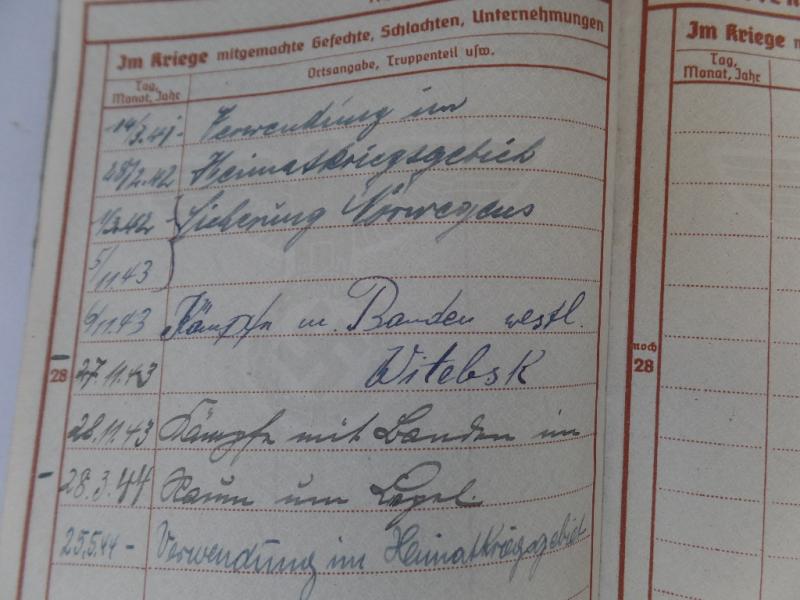 Im Kriege mitgemachte Gefechte, Schlachten, Unternehmungen
Tag, Monat, Jahr
Ortsangabe, Truppenteil usw.
14/3.41- Verwendung im
28/2.42 Heimatkriegsgebiet
1/3.42 Sicherung Norwegens
5/11 43
6/11.43 Kämpfe m. Banden westl.
28
27.11.43 Witebsk
28.11.43 Kämpfe mit Banden im
28.3.44 Raum um Lepel.
25.5.44 - Verwendung im Heimatkriegsgebiet
Im Kriege
Tag, Monat, Jahr
noch
28